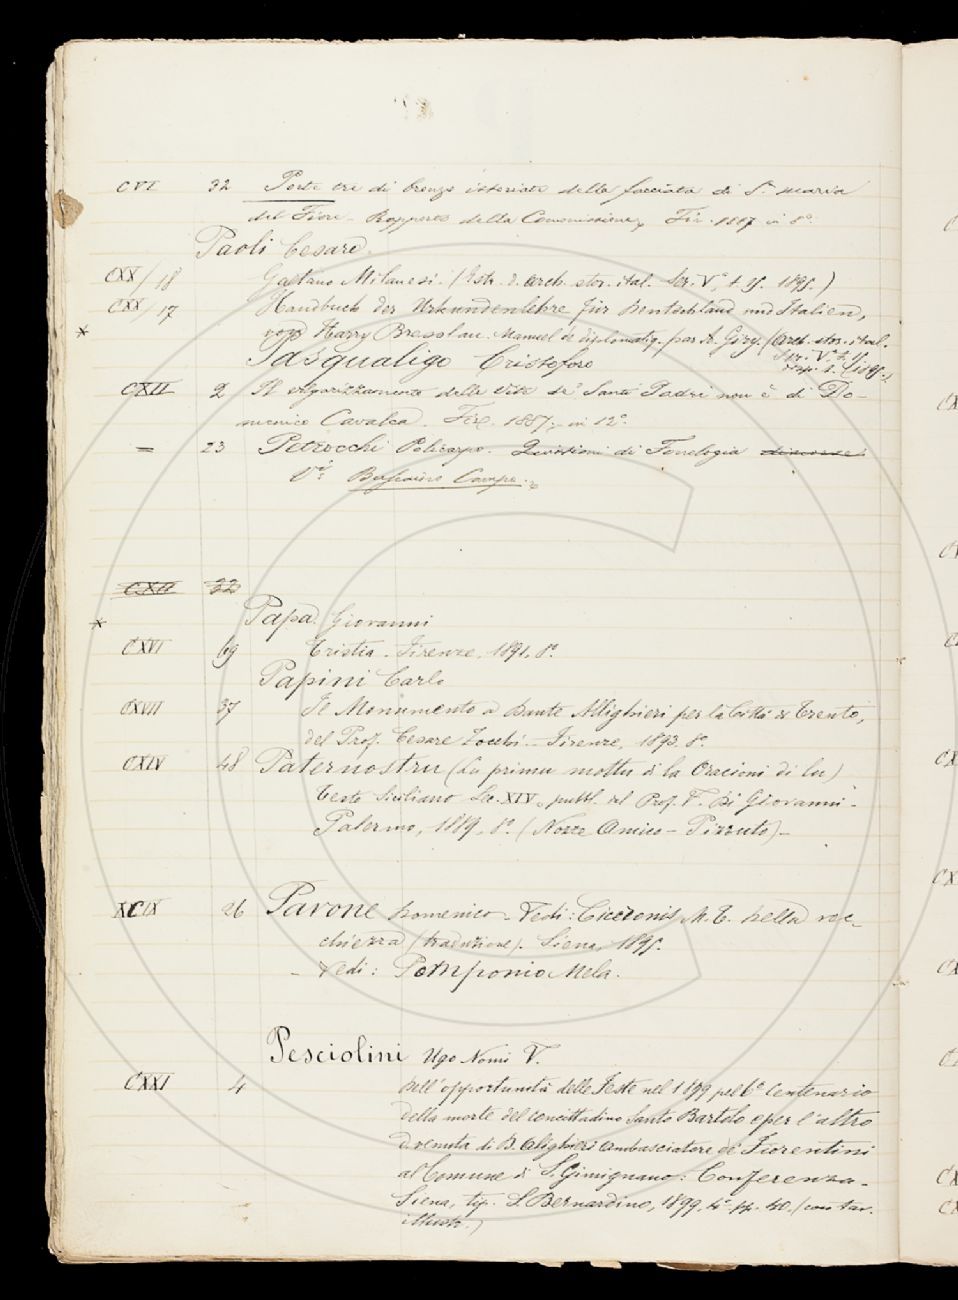 CVI 32 Porte tre di bronzo istoriate della facciata di S.ta Maria
del Fiore. Rapporto della Commissione, Fir. 1887 in 8°
Paoli Cesare
CXX/18 Gaetano Milanesi. (Estr. d. Arch. stor. ital. Ser. V.a, t. 15. 1895.)
CXX/17 Handbuch der Urkundenlehre für Deutschland und Italien,
* von Harry Bresslau. Manuel de diplomatiq. par A. Giry. (Arch. stor. ital.
Ser. V.a t. 15.
1895.)
Pasqualigo Cristoforo
CXII 2 Il volgarizzamento delle Vite de' Santi Padri non è di Do-
menico Cavalca. Fir. 1887, in 12°
= 23 Petrocchi Policarpo. Quistioni di Fonologia
V.i
CXII 22
Papa Giovanni
*
CXVI 69 Tristia. Firenze, 1891. 8°.
Papini Carlo
CXVII 37 Il Monumento a Dante Allighieri per la Città di Trento,
del Prof. Cesare Zocchi - Firenze, 1893. 8°.
CXIV 48 Paternostru (Lu primu mottu di la Oracioni di lu)
Testo Siciliano Sec. XIV, pubbl. dal Prof. V. Di Giovanni -
Palermo, 1889. 8°. (Nozze Amico - Pizzuto) -
XCIX 26 Pavone Domenico - Vedi: Ciceronis M. T. Della vec-
chiezza (traduzione). Siena, 1895.
- Vedi: Pomponio Mela.
Pesciolini Ugo Nomi V.
CXXI 4 Dell'opportunità delle Feste nel 1899 pel 6° Centenario
della morte del concittadino Santo Bartolo e per l'altro
d. venuta di D. Alighieri ambasciatore de' Fiorentini
al Comune di S. Gimignano: Conferenza -
Siena, tip. S. Bernardino, 1899. 4° pp. 40. (con tav.
illustr.)